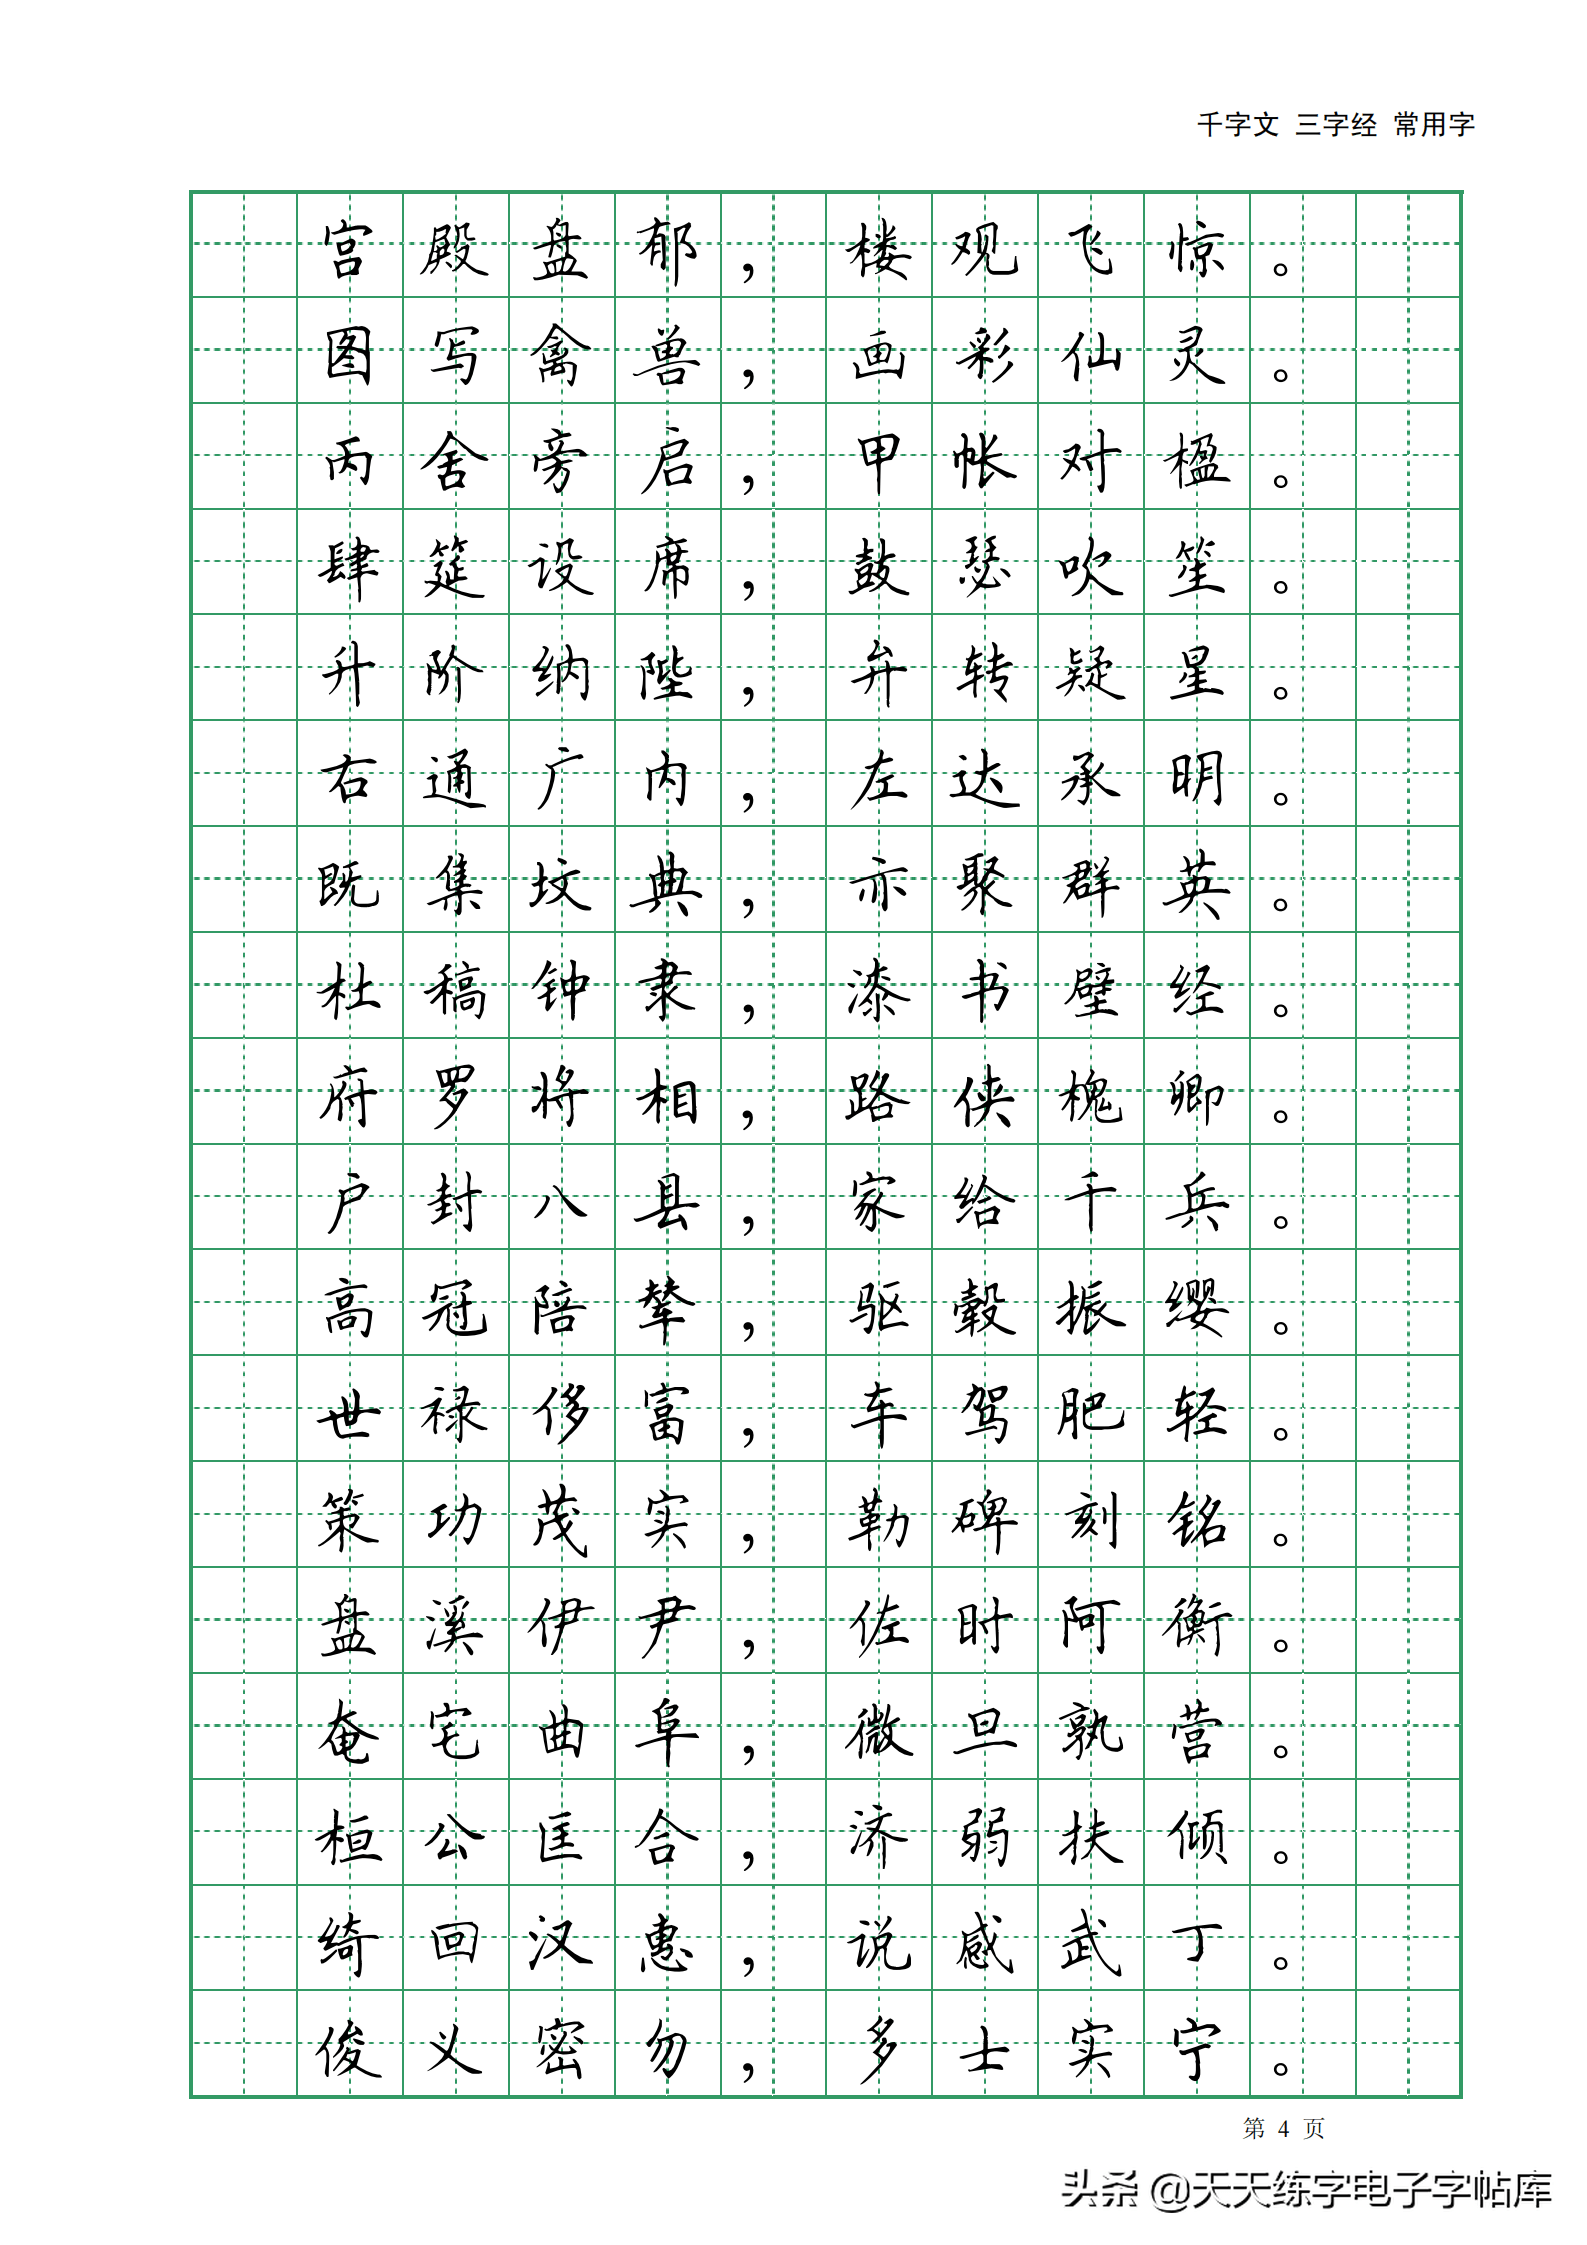 千字文 三字经 常用字
宫殿盘郁，楼观飞惊。
图写禽兽，画彩仙灵。
丙舍旁启，甲帐对楹。
肆筵设席，鼓瑟吹笙。
升阶纳陛，弁转疑星。
右通广内，左达承明。
既集坟典，亦聚群英。
杜稿钟隶，漆书壁经。
府罗将相，路侠槐卿。
户封八县，家给千兵。
高冠陪辇，驱毂振缨。
世禄侈富，车驾肥轻。
策功茂实，勒碑刻铭。
盘溪伊尹，佐时阿衡。
奄宅曲阜，微旦孰营。
桓公匡合，济弱扶倾。
绮回汉惠，说感武丁。
俊义密勿，多士实宁。
第 4 页
头条 @天天练字电子字帖库